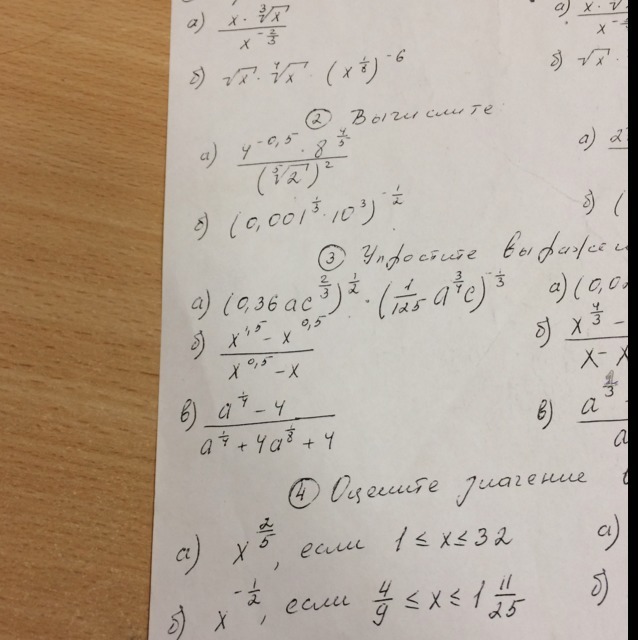 а) x · ∛x / x^(-2/3) а) x · √
x^-
б) √x · ⁴√x · (x^(1/8))^(-6) б) √x ·
② Вычислите
а) 4^(-0,5) · 8^(4/5) / (⁵√2)^2 а) 2
б) (0,001^(1/3) · 10^3)^(-1/2) б) (
③ Упростите
а) (0,36 ac^(2/3))^(1/2) · (1/125 a^(3/4) c)^(-1/3) а) (0,0
б) (x^(1,5) - x^(0,5)) / (x^(0,5) - x) б) x^(4/3) -
x - x
в) (a^(1/4) - 4) / (a^(1/4) + 4a^(1/8) + 4) в) a
a
④ Оцените значение
а) x^(2/5), если 1 ≤ x ≤ 32 а)
б) x^(-1/2), если 4/9 ≤ x ≤ 1 11/25 б)